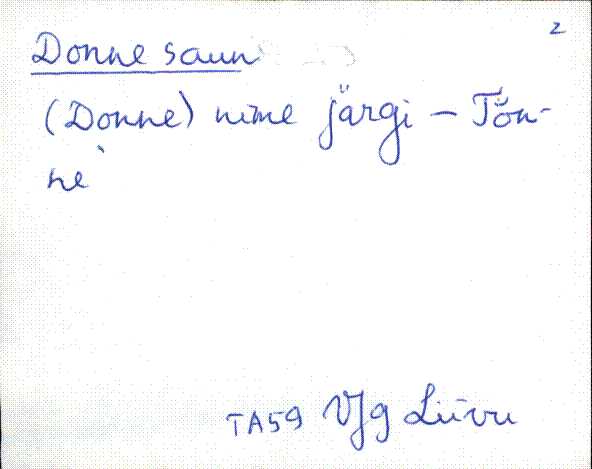 2
Donne saun
(Donne) nime järgi – Tõn-
ne
TA59 VJg Liivu